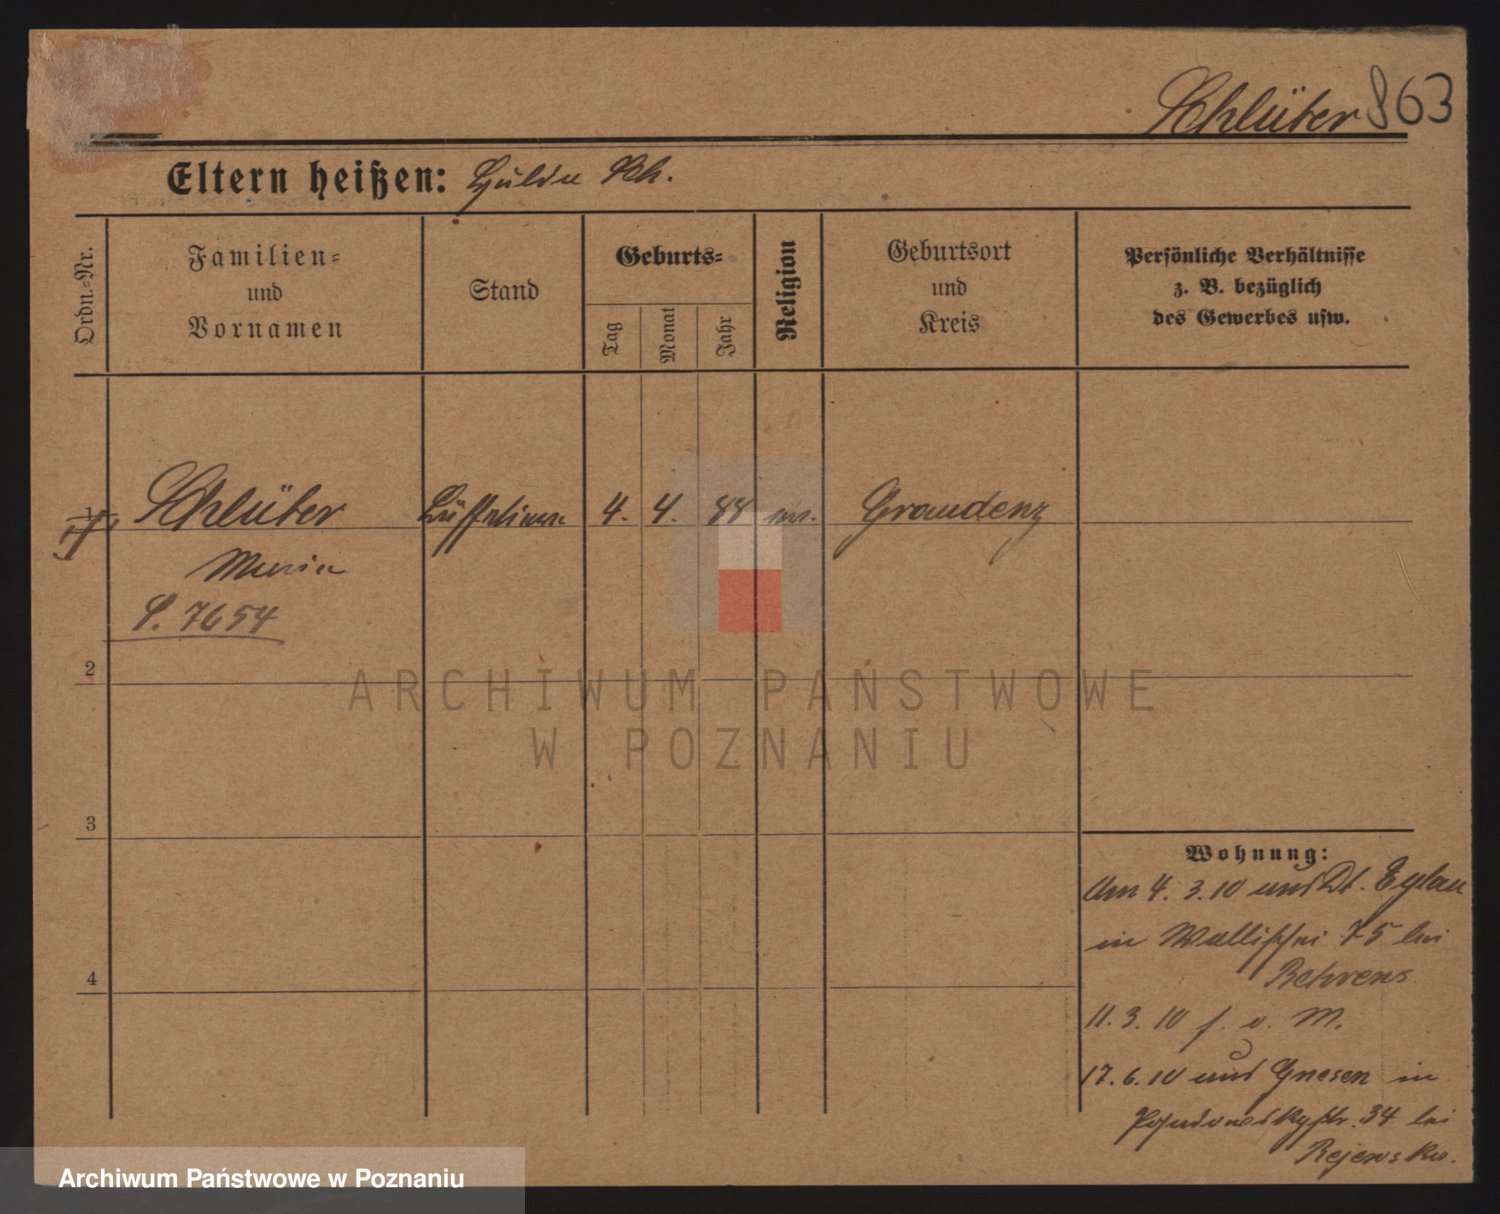 Schlüter 863
Eltern heißen: Hulda Sch.
Ordn.-Nr.
Familien-
und
Vornamen
Stand
Geburts-
Tag
Monat
Jahr
Religion
Geburtsort
und
Kreis
Persönliche Verhältnisse
z. B. bezüglich
des Gewerbes usw.
1 Schlüter 4. 4. 88 Graudenz
Maria
S. 7654
2
ARCHIWUM PAŃSTWOWE
W POZNANIU
3
4
Wohnung:
Am 4. 3. 10 aus Dt. Eylau
in Wallischei 75 bei
Behrens
11. 3. 10 f. v. M.
17. 6. 10 aus Gnesen in
34 bei
Archiwum Państwowe w Poznaniu